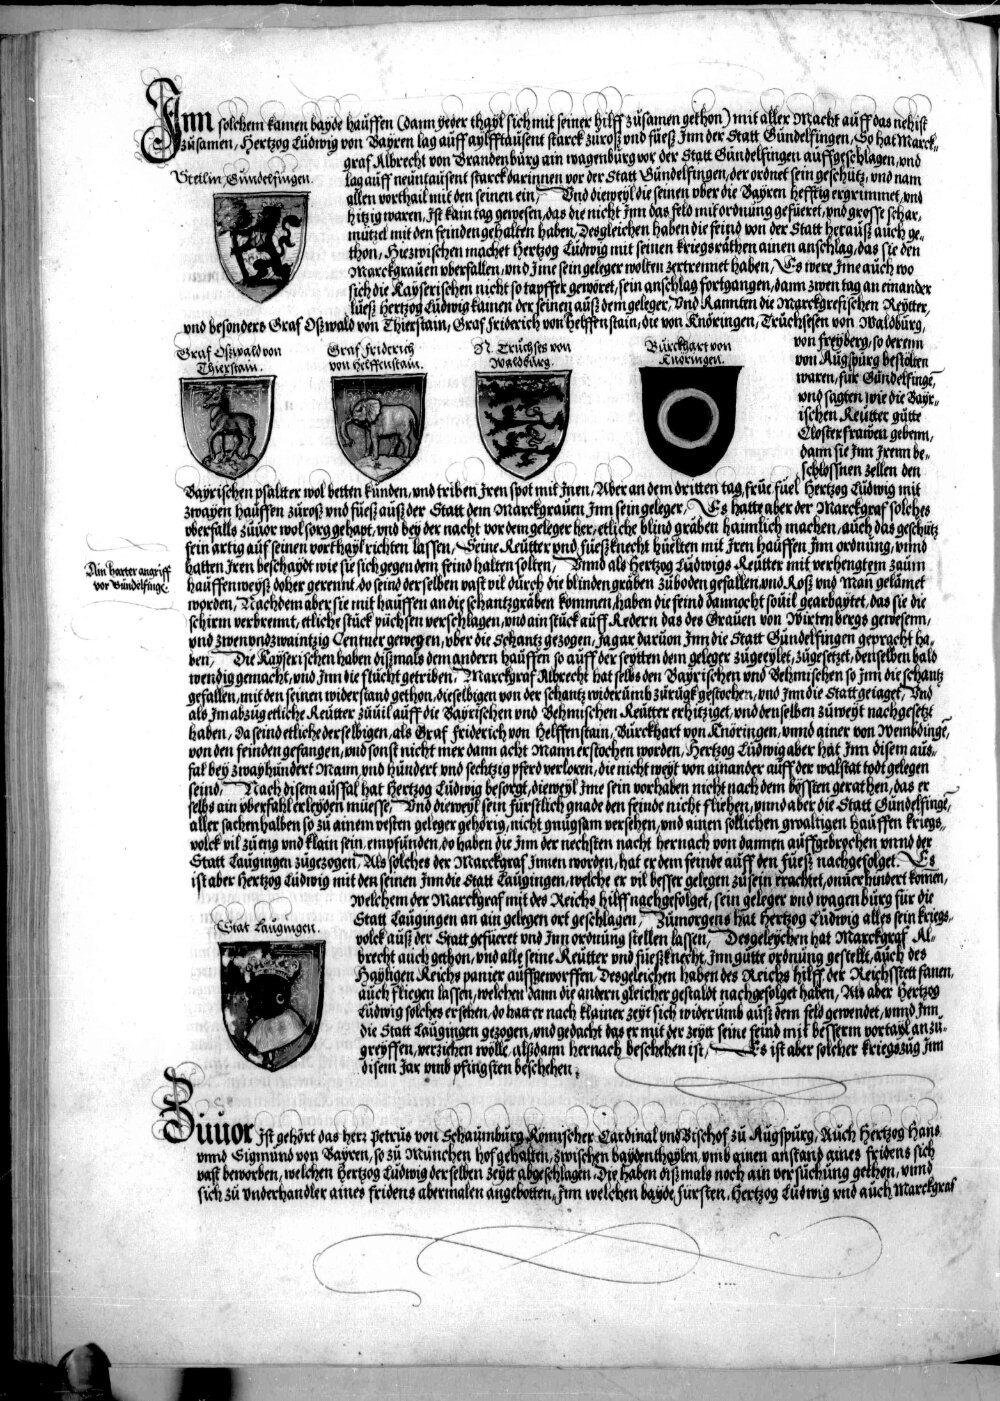 Inn solchem kamen bayde hauffen (dann yeder thayl sich mit seiner hilff zusamen gethon) mit aller Macht auff das nehist
zusamen, Hertzog Ludwig von Bayren lag auff aylfftausent starck zuroß vnd fueß Inn der Statt Gundelfingen, So hat Marck-
graf Albrecht von Brandenburg ain wagenburg vor der Statt Gundelfingen auffgeschlagen, vnd
Stetlin Gundelfingen.
lag auff neuntausent starck darinnen vor der Statt Gundelfingen, der ordnet sein geschutz, vnd nam
allen vorthail mit den seinen ein, Vnd dieweyl die seinen vber die Bayren hefftig ergrimmet, vnd
hitzig waren, Ist kain tag gewesen, das die nicht Inn das feld mit ordnung gefueret, vnd grosse schar-
mutzel mit den feinden gehalten haben, Desgleichen haben die feind von der Statt herauß auch ge-
thon, Hiezwischen machet Hertzog Ludwig mit seinen kriegsräthen ainen anschlag, das sie den
Marckgrauen vberfallen, vnd Ime sein geleger wolten zertrennet haben, Es were Ime auch wo
sich die Kayserischen nicht so tapffer gewöret, sein anschlag fortgangen, dann zwen tag an einander
lueß Hertzog Ludwig kainen der seinen auß dem geleger, Vnd Kannten die Marckgrefischen Reytter,
vnd besonders Graf Oßwald von Thierstain, Graf Friderich von Helffenstain, die von Knöringen, Truchsesen von Waldburg,
Graf Oßwald von
Thierstain.
Graf Friderich
von Helffenstain.
N. Truchses von
Waldburg.
Burckhart von
Knöringen.
von Freyberg, so derenn
von Augspurg bestölten
waren, für Gundelfinge,
vnd sagten wie die Bayr-
ischen Reutter gutte
Closterfrawen gebenn,
dann sie Inn Irenn be-
schlossnen zellen den
Bayrischen psaltter wol betten kunden, vnd triben Iren spot mit Inen, Aber an dem dritten tag, frue fuel Hertzog Ludwig mit
zwayen hauffen zuroß vnd fueß auß der Statt dem Marckgrauen Inn sein geleger, Es hatte aber der Marckgraf solches
vberfalls zuuor wol sorg gehapt, vnd bey der nacht vor dem geleger her, etliche blind gräben haimlich machen, auch das geschutz
fein artig auf seinen vorthayl richten lassen, Seine Reutter vnd fueßknecht huelten mit Iren hauffen Inn ordnung, vnnd
Ain harter angriff
vor Gundelfinge.
hatten Iren beschaydt wie sie sich gegen dem feind halten solten, Vnnd als Hertzog Ludwigs Reutter mit verhengtem zaum
hauffenweyß doher gerennt, do seind derselben vast vil durch die blinden gräben zuboden gefallen, vnd Roß vnd Man gelämet
worden, Nachdem aber sie mit hauffen an die schantzgräben kommen, haben die feind dannocht souil gearbaytet, das sie die
schirm verbrennt, etliche stuck puchsen verschlagen, vnd ain stuck auff Redern das des Grauen von Wirtenbergs gewesenn,
vnd zwenvndzwaintzig Centner gewegen, vber die Schantz gezogen, Ja gar daruon Inn die Statt Gundelfingen gepracht ha-
ben, Die Kayserischen haben dißmals dem andern hauffen so auff der seytten dem geleger zugeeylet, zugesetzet, denselben bald
wendig gemacht, vnd Inn die flucht getriben, Marckgraf Albrecht hat selbs den Bayrischen vnd Behmischen so Inn die schantz
gefallen, mit den seinen widerstand gethon, dieselbigen von der schantz widerumb zurugk gestochen, vnd Inn die Statt geiaget, Vnd
als Im abzug etliche Reutter zuuil auff die Bayrischen vnd Behmischen Reutter erhitziget, vnd denselben zuweyt nachgesetzt
haben, Da seind etliche derselbigen, als Graf Friderich von Helffenstain, Burckhart von Knöringen, vnnd ainer von Wembdinge,
von den feinden gefangen, vnd sonst nicht mer dann acht Mann erstochen worden, Hertzog Ludwig aber hat Inn disem aus-
fal bey zwayhundert Mann vnd hundert vnd sechtzig pferd verloren, die nicht weyt von ainander auff der walstat todt gelegen
seind, Nach disem aussfal hat Hertzog Ludwig besorgt, dieweyl Ime sein vorhaben nicht nach dem bössten gerathen, das er
selbs ain vberfahl erleyden muesse, Vnd dieweyl sein furstlich gnade den feinde nicht fliehen, vnnd aber die Statt Gundelfinge,
aller sachenhalben so zu ainem vesten geleger gehörig, nicht gnugsam versehen, vnd ainen sollichen gwaltigen hauffen kriegs-
volck vil zu eng vnd klain sein, empfunden, do haben die Inn der nechsten nacht hernach von dannen auffgebrochen vnnd der
Statt Laugingen zugezogen, Als solches der Marckgraf Innen worden, hat er dem feinde auff den fueß nachgefolget. Es
ist aber Hertzog Ludwig mit den seinen Inn die Statt Laugingen, welche er vil besser gelegen zusein erachtet, onuerhindert komen,
welchem der Marckgraf mit des Reichs hilff nachgefolget, sein geleger vnd wagenburg für die
Stat Laugingen.
Statt Laugingen an ain gelegen ort geschlagen, Zumorgens hat Hertzog Ludwig alles sein kriegs-
volck auß der Statt gefueret vnd Inn ordnung stellen lassen, Desgeleychen hat Marckgraf Al-
brecht auch gethon, vnd alle seine Reutter vnd fueßknecht, Inn gutte ordnung gestelt, auch des
Hayligen Reichs panier auffgeworffen, Desgleichen haben des Reichs hilff der Reichsstett fanen,
auch fliegen lassen, welchen dann die andern gleicher gestaldt nachgefolget haben, Als aber Hertzog
Ludwig solches ersehen, do hatt er nach klainer zeyt sich widerumb auß dem feld gewendet, vnnd Inn
die Statt Laugingen gezogen, vnd gedacht das er mit der zeytt seine feind mit besserm vortayl anzu-
greyffen, verziehen wölle, alßdann hernach beschehen ist, Es ist aber solcher kriegszug Inn
disem Jar vmb pfingsten beschehen.
Zuuor ist gehört das herr Petrus von Schaumburg Römischer Cardinal vnd Bischof zu Augspurg, Auch Hertzog Hans
vnnd Sigmund von Bayren, so zu München hof gehalten, zwischen bayden thaylen, vmb ainen anstand aines fridens sich
vast beworben, welchen Hertzog Ludwig derselben zeytt abgeschlagen, Die haben dißmals noch ain versuchung gethon, vnnd
sich zu vnderhandler aines fridens abermalen angebotten, Inn welchen bayde fürsten, Hertzog Ludwig vnd auch Marckgraf